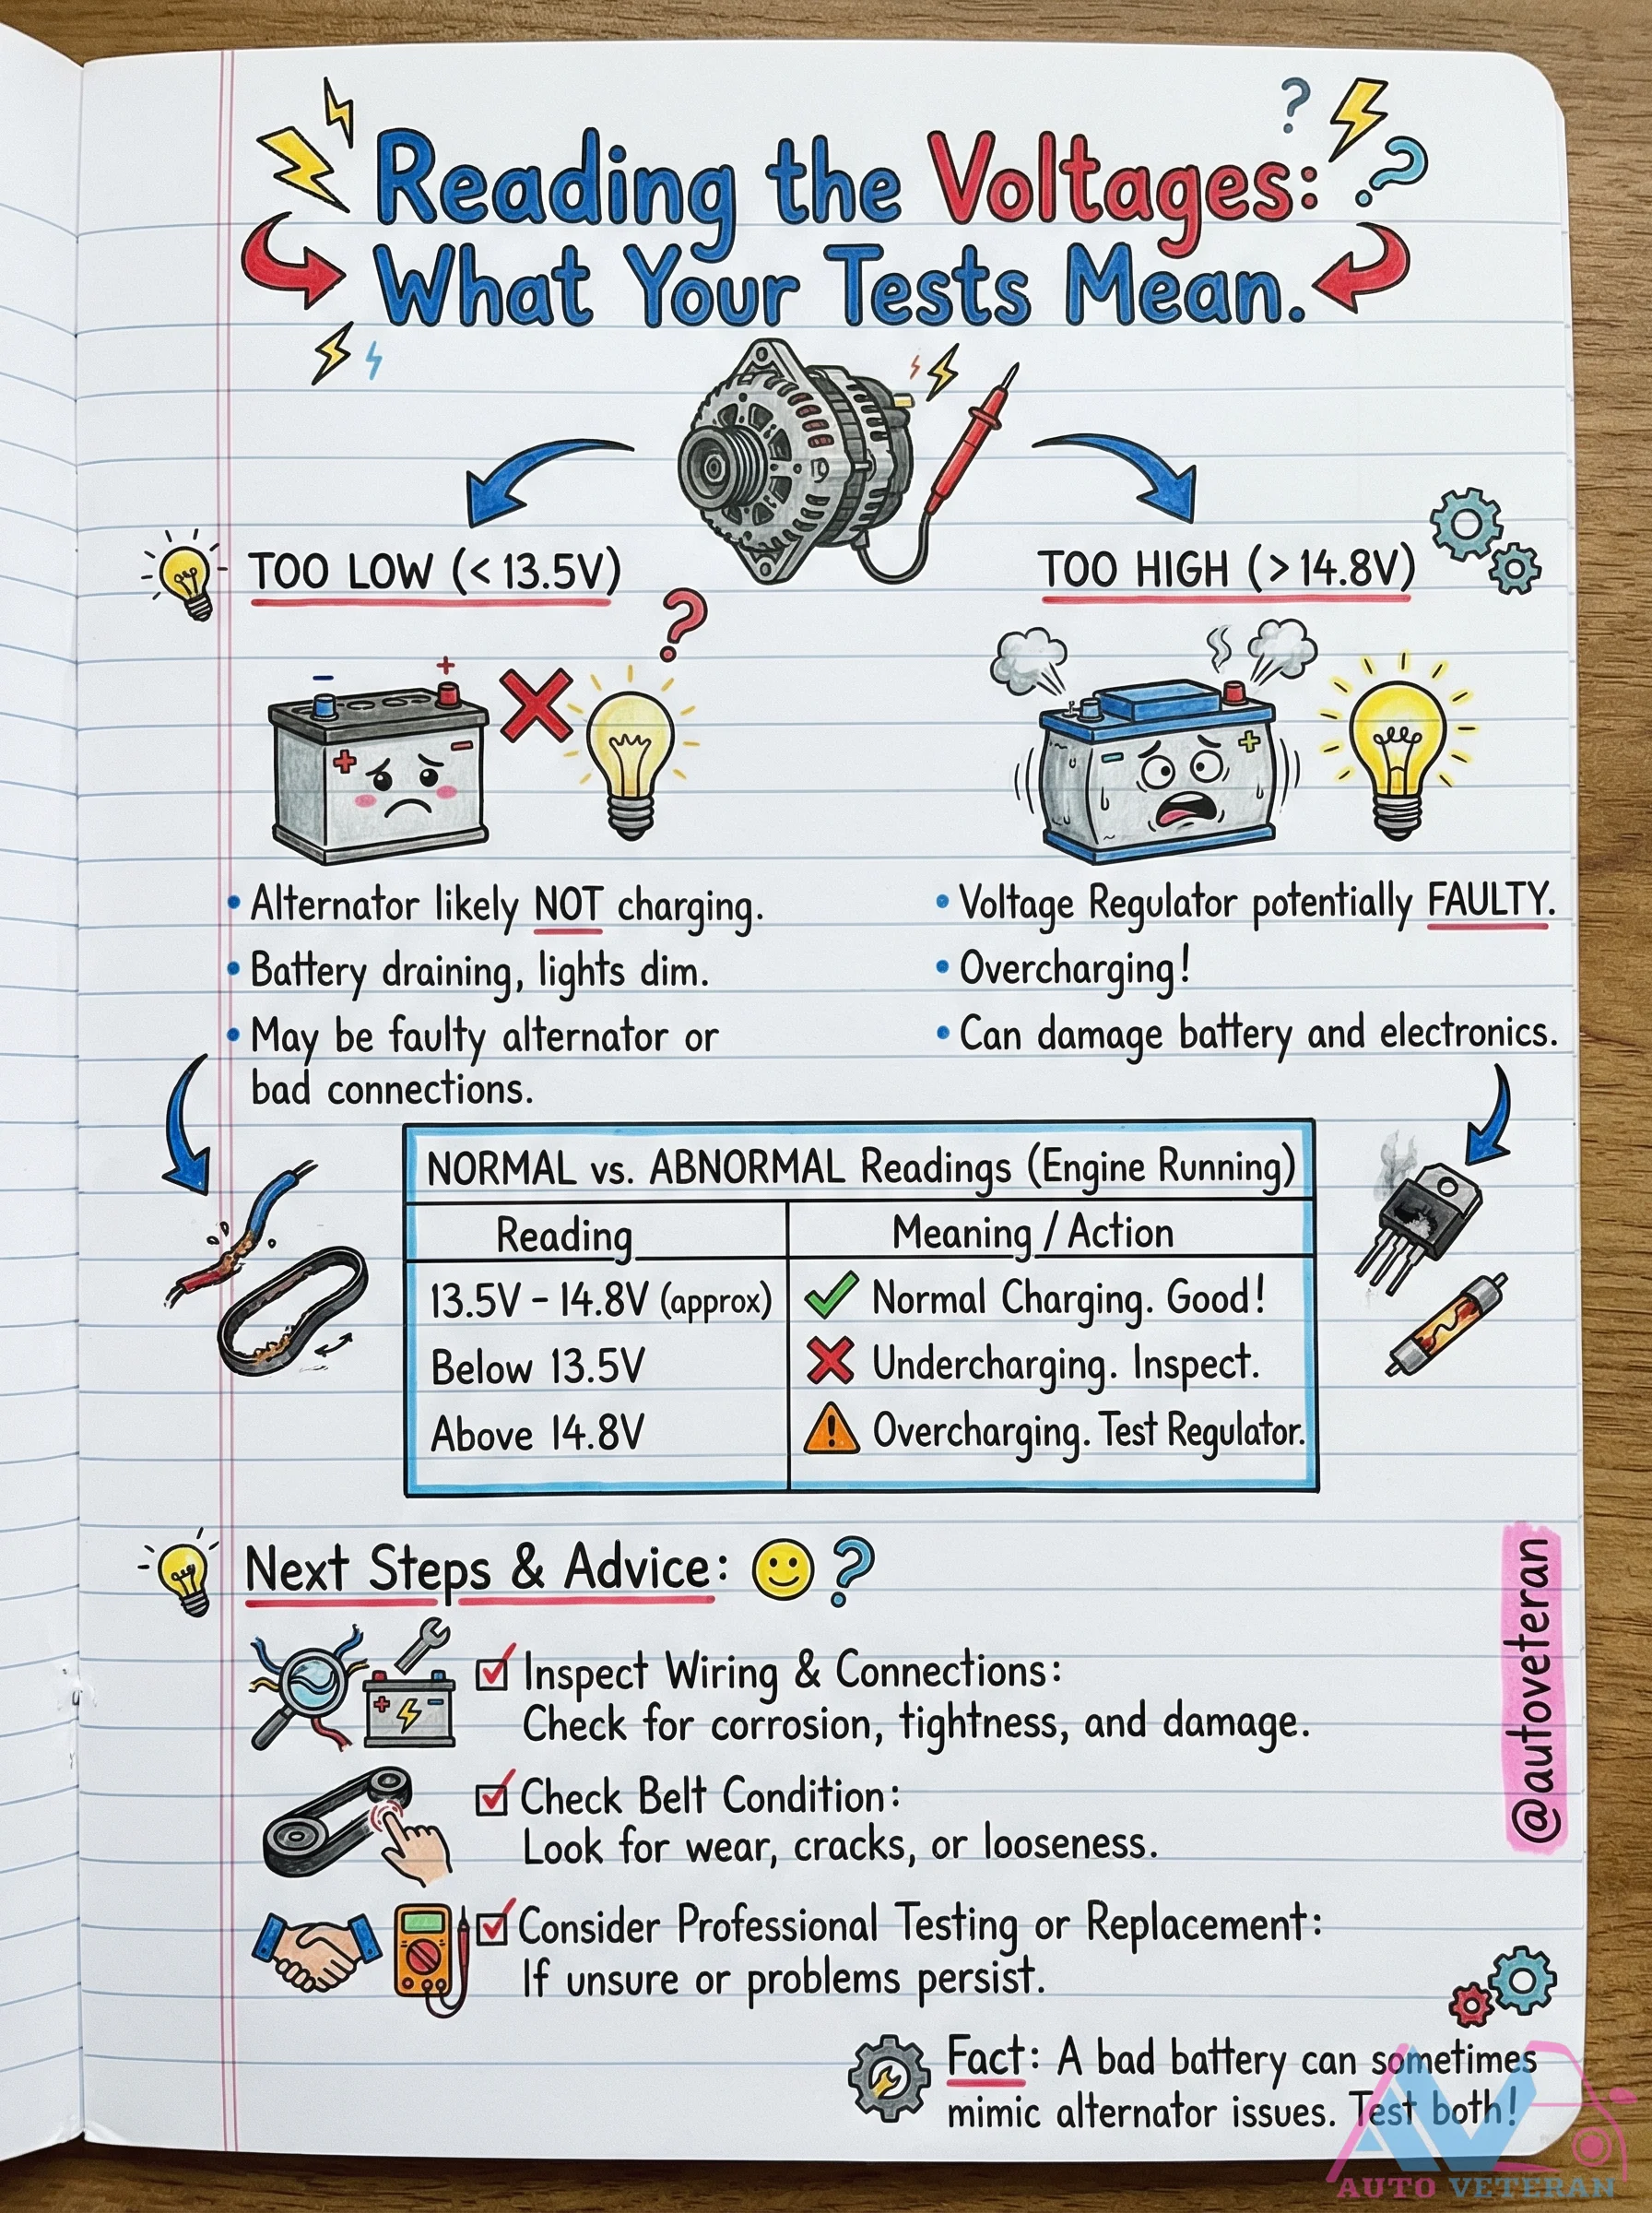 Reading the Voltages:
What Your Tests Mean.
TOO LOW (< 13.5V)
• Alternator likely NOT charging.
• Battery draining, lights dim.
• May be faulty alternator or
bad connections.
TOO HIGH (> 14.8V)
• Voltage Regulator potentially FAULTY.
• Overcharging!
• Can damage battery and electronics.
NORMAL vs. ABNORMAL Readings (Engine Running)
Reading Meaning / Action
13.5V – 14.8V (approx) Normal Charging. Good!
Below 13.5V Undercharging. Inspect.
Above 14.8V Overcharging. Test Regulator.
Next Steps & Advice:
Inspect Wiring & Connections:
Check for corrosion, tightness, and damage.
Check Belt Condition:
Look for wear, cracks, or looseness.
Consider Professional Testing or Replacement:
If unsure or problems persist.
Fact: A bad battery can sometimes
mimic alternator issues. Test both!
@autoveteran
AV
AUTO VETERAN